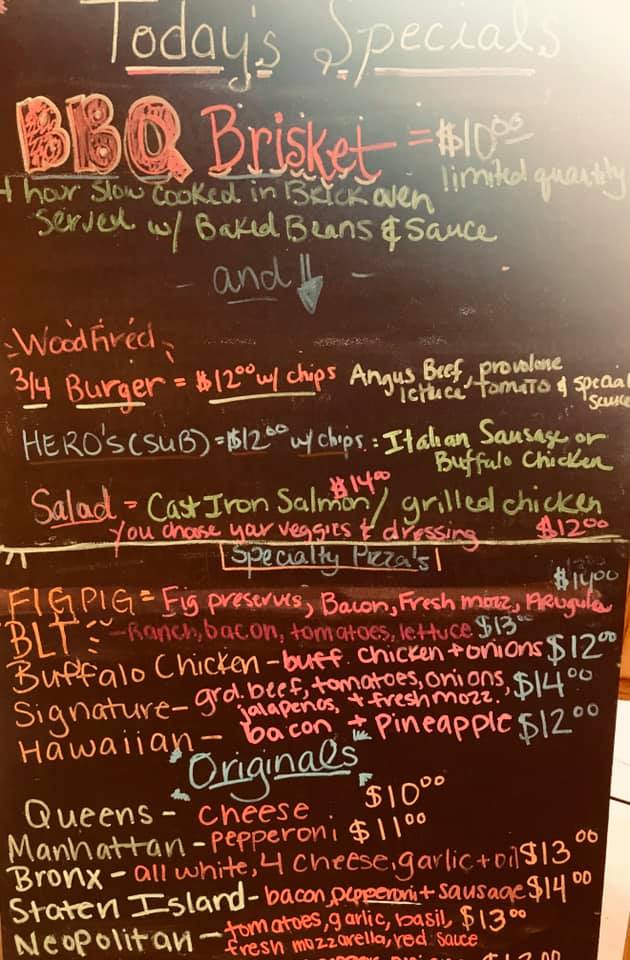 Today's Specials
BBQ Brisket = $10⁰⁰
limited quantity
hour slow cooked in Brick oven
served w/ Baked Beans & Sauce
- and -
Woodfired
3/4 Burger = $12⁰⁰ w/ chips Angus Beef, provolone
lettuce, tomato & special
sauce
HERO'S (SUB) = $12⁰⁰ w/ chips. : Italian Sausage or
Buffalo Chicken
$14⁰⁰
Salad = Cast Iron Salmon / grilled chicken
You chose your veggies & dressing $12⁰⁰
Specialty Pizza's
$14⁰⁰
FIG PIG = Fig preserves, Bacon, Fresh mozz, Arugula
BLT - Ranch, bacon, tomatoes, lettuce $13⁰⁰
Buffalo Chicken - buff. chicken + onions $12⁰⁰
Signature - grd. beef, tomatoes, onions, $14⁰⁰
jalapenos, + fresh mozz.
Hawaiian - bacon + Pineapple $12⁰⁰
Originals
Queens - cheese $10⁰⁰
Manhattan - pepperoni $11⁰⁰
Bronx - all white, 4 cheese, garlic + oil $13⁰⁰
Staten Island - bacon, pepperoni + sausage $14⁰⁰
Neopolitan - tomatoes, garlic, basil, $13⁰⁰
fresh mozzarella, red sauce